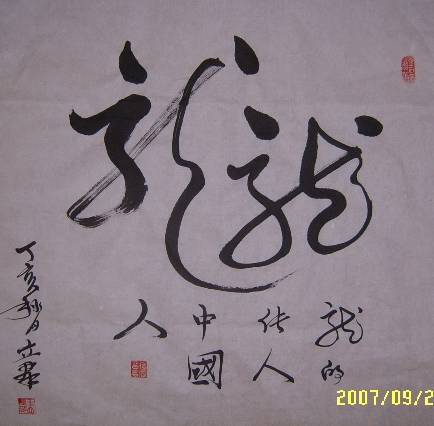 龍龍
龍的
传人
中國
人
丁亥秋月立
2007/09/2